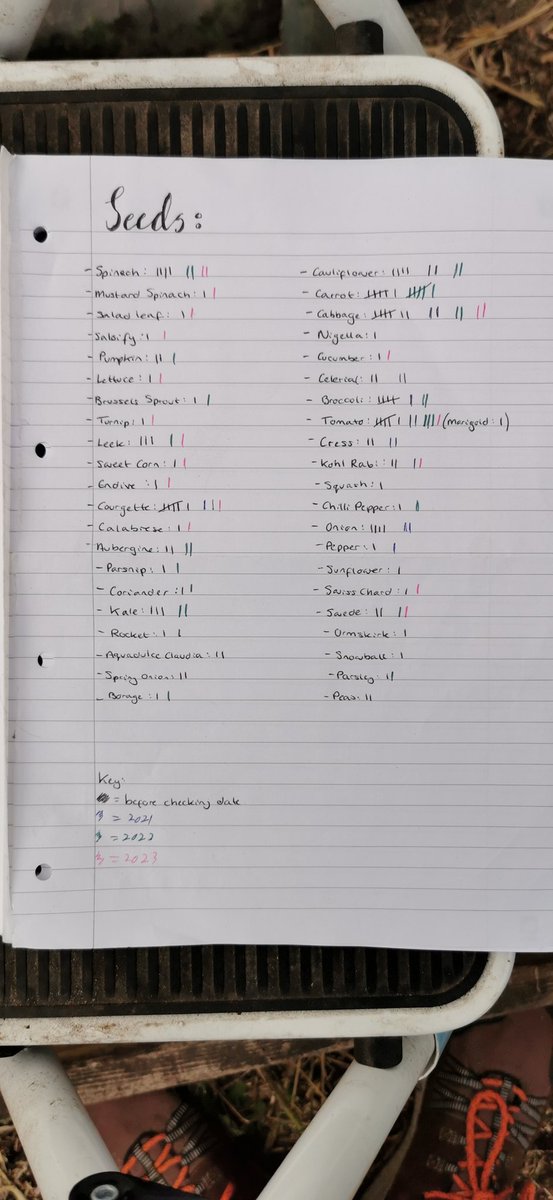 Seeds:
- Spinach: |||| || ||
- Mustard Spinach: | |
- Salad leaf: | |
- Salsify: | |
- Pumpkin: || |
- Lettuce: | |
- Brussels Sprout: | |
- Turnip: | |
- Leek: ||| | |
- Sweet Corn: | |
- Endive: | |
- Courgette: |||| | | ||
- Calabrese: | |
- Aubergine: || ||
- Parsnip: | |
- Coriander: | |
- Kale: ||| ||
- Rocket: | |
- Aquadulce Claudia: ||
- Spring Onion: ||
- Borage: | |
- Cauliflower: |||| || ||
- Carrot: |||| | |||| |
- Cabbage: |||| || || || ||
- Nigella: |
- Cucumber: | |
- Celeriac: || ||
- Broccoli: |||| | ||
- Tomato: |||| | || |||| | (marigold: |)
- Cress: || ||
- Kohl Rabi: || ||
- Squash: |
- Chilli Pepper: | |
- Onion: |||| ||
- Pepper: | |
- Sunflower: |
- Swiss Chard: | |
- Swede: || ||
- Ormskirk: |
- Snowball: |
- Parsley: ||
- Peas: ||
Key:
= before checking date
= 2021
= 2022
= 2023